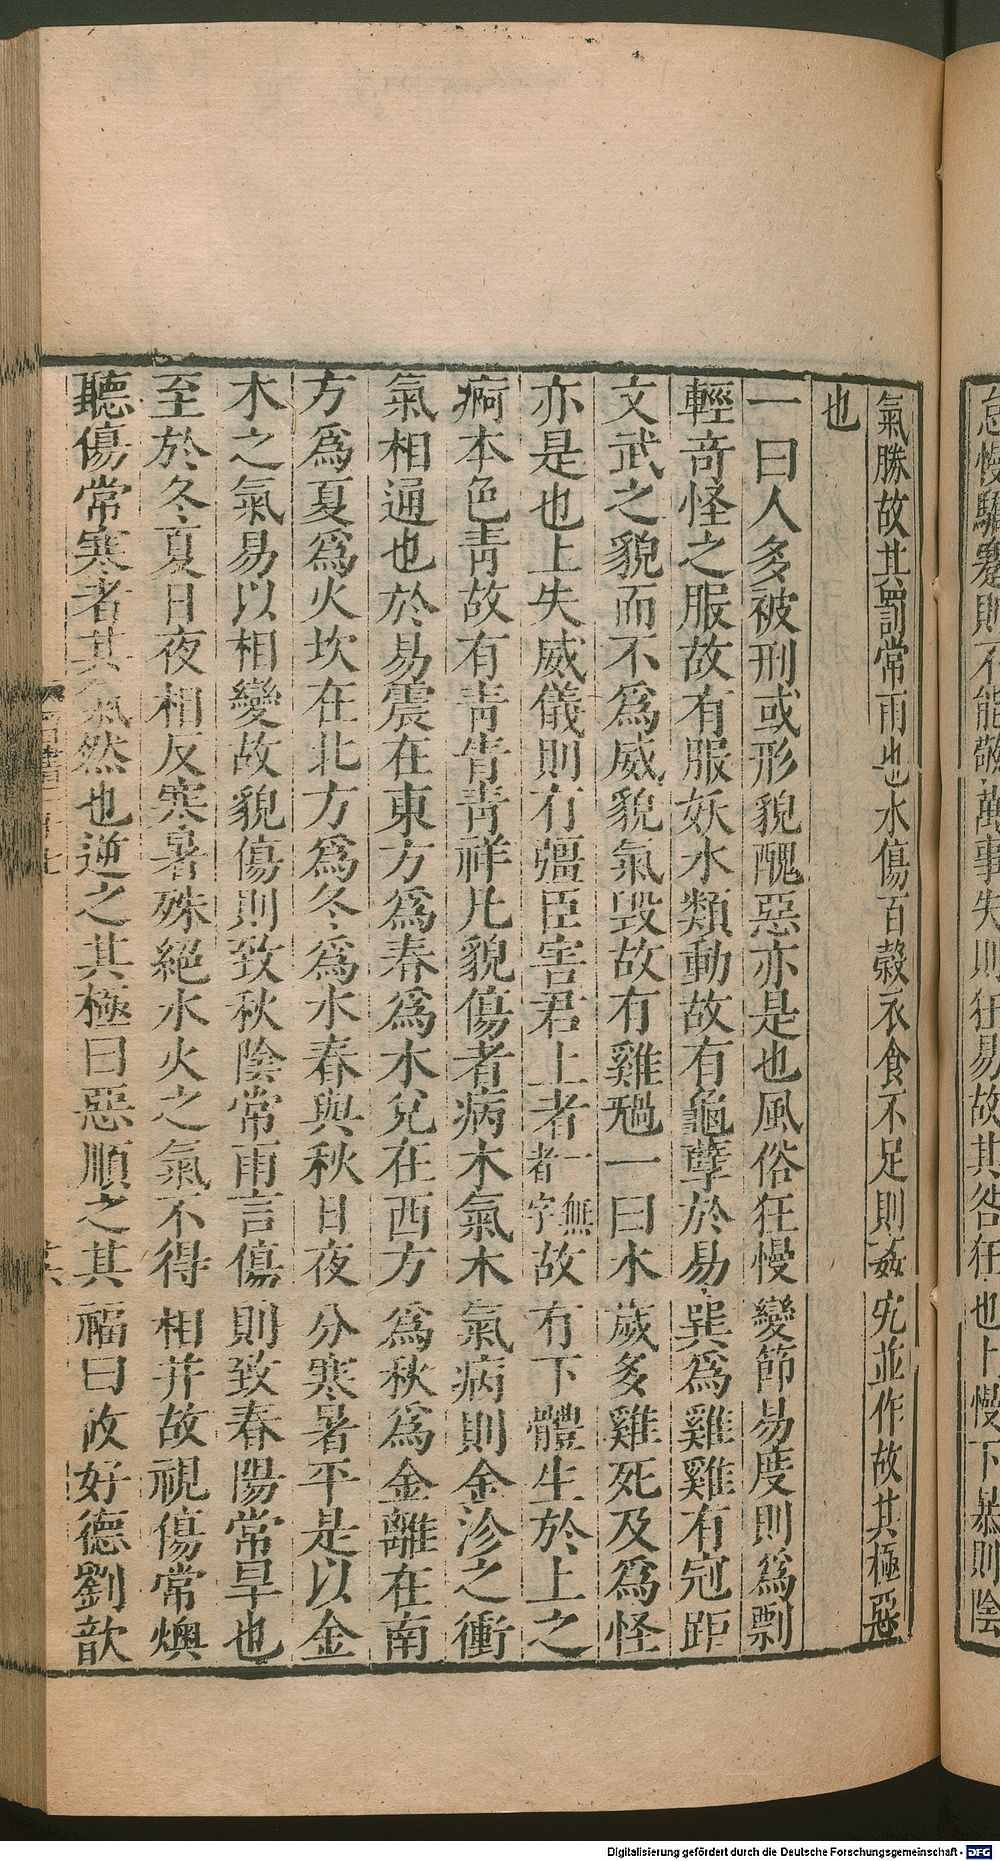 怠慢驕蹇則不能敬萬事失則狂易故其咎狂也上慢下暴則陰
氣勝故其罰常雨也水傷百穀衣食不足則姦宄並作故其極惡
也
一曰人多被刑或形貌醜惡亦是也風俗狂慢變節易度則爲剽
輕奇怪之服故有服妖水類動故有龜孽於易巽爲雞雞有冠距
文武之貌而不爲威貌氣毀故有雞旤一曰水歲多雞死及爲怪
亦是也上失威儀則有彊臣害君上者一無者字故有下體生於上之
痾本色青故有青眚青祥凡貌傷者病木氣木氣病則金沴之衝
氣相通也於易震在東方爲春爲木兌在西方爲秋爲金離在南
方爲夏爲火坎在北方爲冬爲水春與秋日夜分寒暑平是以金
木之氣易以相變故貌傷則致秋陰常雨言傷則致春陽常旱也
至於冬夏日夜相反寒暑殊絕水火之氣不得相并故視傷常燠
聽傷常寒者其氣然也逆之其極曰惡順之其福曰攸好德劉歆
Digitalisierung gefördert durch die Deutsche Forschungsgemeinschaft - DFG